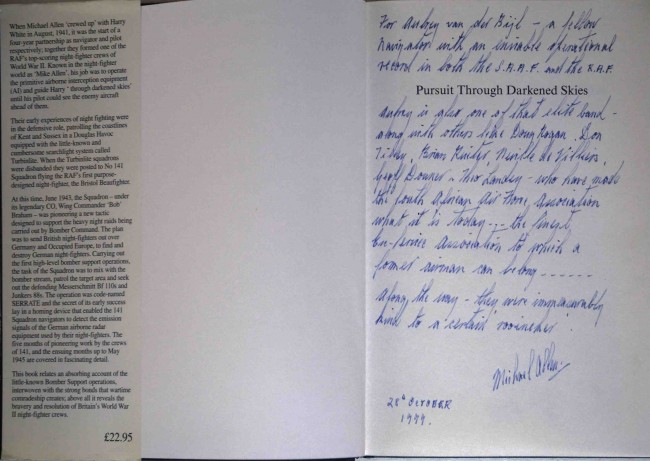 When Michael Allen 'crewed up' with Harry
White in August, 1941, it was the start of a
four-year partnership as navigator and pilot
respectively; together they formed one of the
RAF's top-scoring night-fighter crews of
World War II. Known in the night-fighter
world as 'Mike Allen', his job was to operate
the primitive airborne interception equipment
(AI) and guide Harry 'through darkened skies'
until his pilot could see the enemy aircraft
ahead of them.
Their early experiences of night fighting were
in the defensive role, patrolling the coastlines
of Kent and Sussex in a Douglas Havoc
equipped with the little-known and
cumbersome searchlight system called
Turbinlite. When the Turbinlite squadrons
were disbanded they were posted to No 141
Squadron flying the RAF's first purpose-
designed night-fighter, the Bristol Beaufighter.
At this time, June 1943, the Squadron – under
its legendary CO, Wing Commander 'Bob'
Braham – was pioneering a new tactic
designed to support the heavy night raids being
carried out by Bomber Command. The plan
was to send British night-fighters out over
Germany and Occupied Europe, to find and
destroy German night fighters. Carrying out
the first high-level bomber support operations,
the task of the Squadron was to mix with the
bomber stream, patrol the target area and seek
out the defending Messerschmitt Bf 110s and
Junkers 88s. The operation was code-named
SERRATE and the secret of its early success
lay in a homing device that enabled the 141
Squadron navigators to detect the emission
signals of the German airborne radar
equipment used by their night-fighters. The
five months of pioneering work by the crews
of 141, and the ensuing months up to May
1945 are covered in fascinating detail.
This book relates an absorbing account of the
little-known Bomber Support operations,
interwoven with the strong bonds that wartime
comradeship creates; above all it reveals the
bravery and resolution of Britain's World War
II night-fighter crews.
£22.95
For Aubrey van der Bijl – a fellow
Navigator with an enviable operational
record in both the S.A.A.F. and the R.A.F.
Pursuit Through Darkened Skies
Aubrey is also one of that elite band –
along with others like Doug Rogan, Don
Tilley, Brian Kinter, Neville de Villiers,
Geoff Downer, Theo Landey – who have made
the South African Air Force Association
what it is today --- the finest
Ex-Service Association to which a
former airman can belong ------
Along the way – they were immeasurably
kind to a 'certain rooinek'.
Michael Allen.
28th OCTOBER
1999.